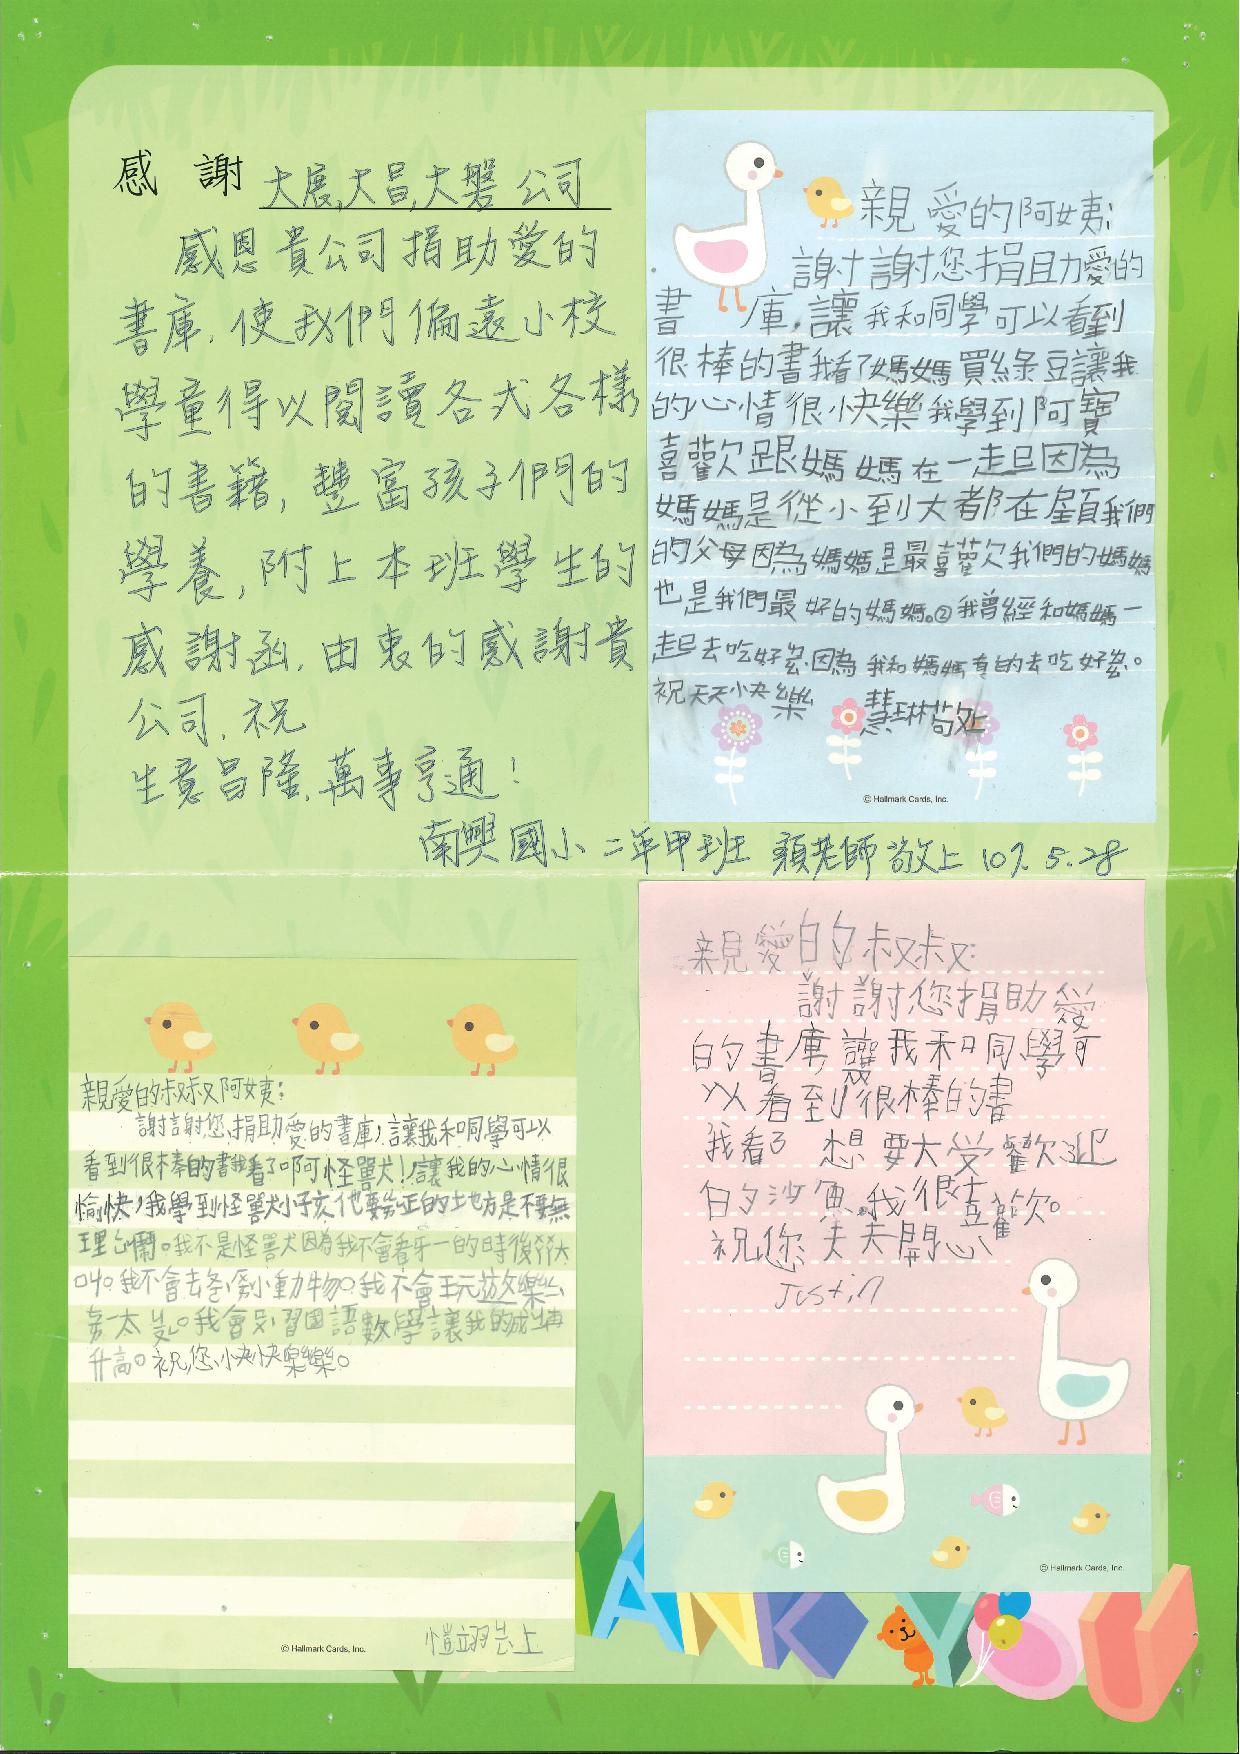 感 謝 大展,大昌,大磐 公司
感恩貴公司捐助愛的
書庫,使我們偏遠小校
學童得以閱讀各式各樣
的書籍,豐富孩子們的
學養,附上本班學生的
感謝函,由衷的感謝貴
公司,祝
生意昌隆,萬事亨通!
南興國小 二年甲班 賴老師 敬上 107.5.28
親愛的阿姨:
謝謝您捐助愛的
書庫,讓我和同學可以看到
很棒的書我看了媽媽買綠豆讓我
的心情很快樂我學到阿寶
喜歡跟媽媽在一起因為
媽媽是從小到大都在顧我們
的父母因為媽媽是最喜歡我們的媽媽
也是我們最好的媽媽。②我曾經和媽媽一
起去吃好料因為我和媽媽真的去吃好料。
祝天天快樂 慧琳敬上
© Hallmark Cards, Inc.
親愛的叔叔阿姨:
謝謝您捐助愛的書庫,讓我和同學可以
看到很棒的書我看了啊可怪獸犬!讓我的心情很
愉快,我學到怪獸小孩他要糾正的地方是不要無
理心鬧。我不是怪獸犬因為我不會看牙一的時後
叫。我不會去爸傷小動物。我不會玩遊樂
我會學習國語數學讓我的成績
升高。祝您快快樂樂。
© Hallmark Cards, Inc.
愷翊 上
親愛的叔叔:
謝謝您捐助愛
的書庫讓我和同學可
以看到很棒的書
我看了 想要大受歡迎
白夕沙魚,我很喜歡。
祝您天天開心
Justin
© Hallmark Cards, Inc.
ANK YOU